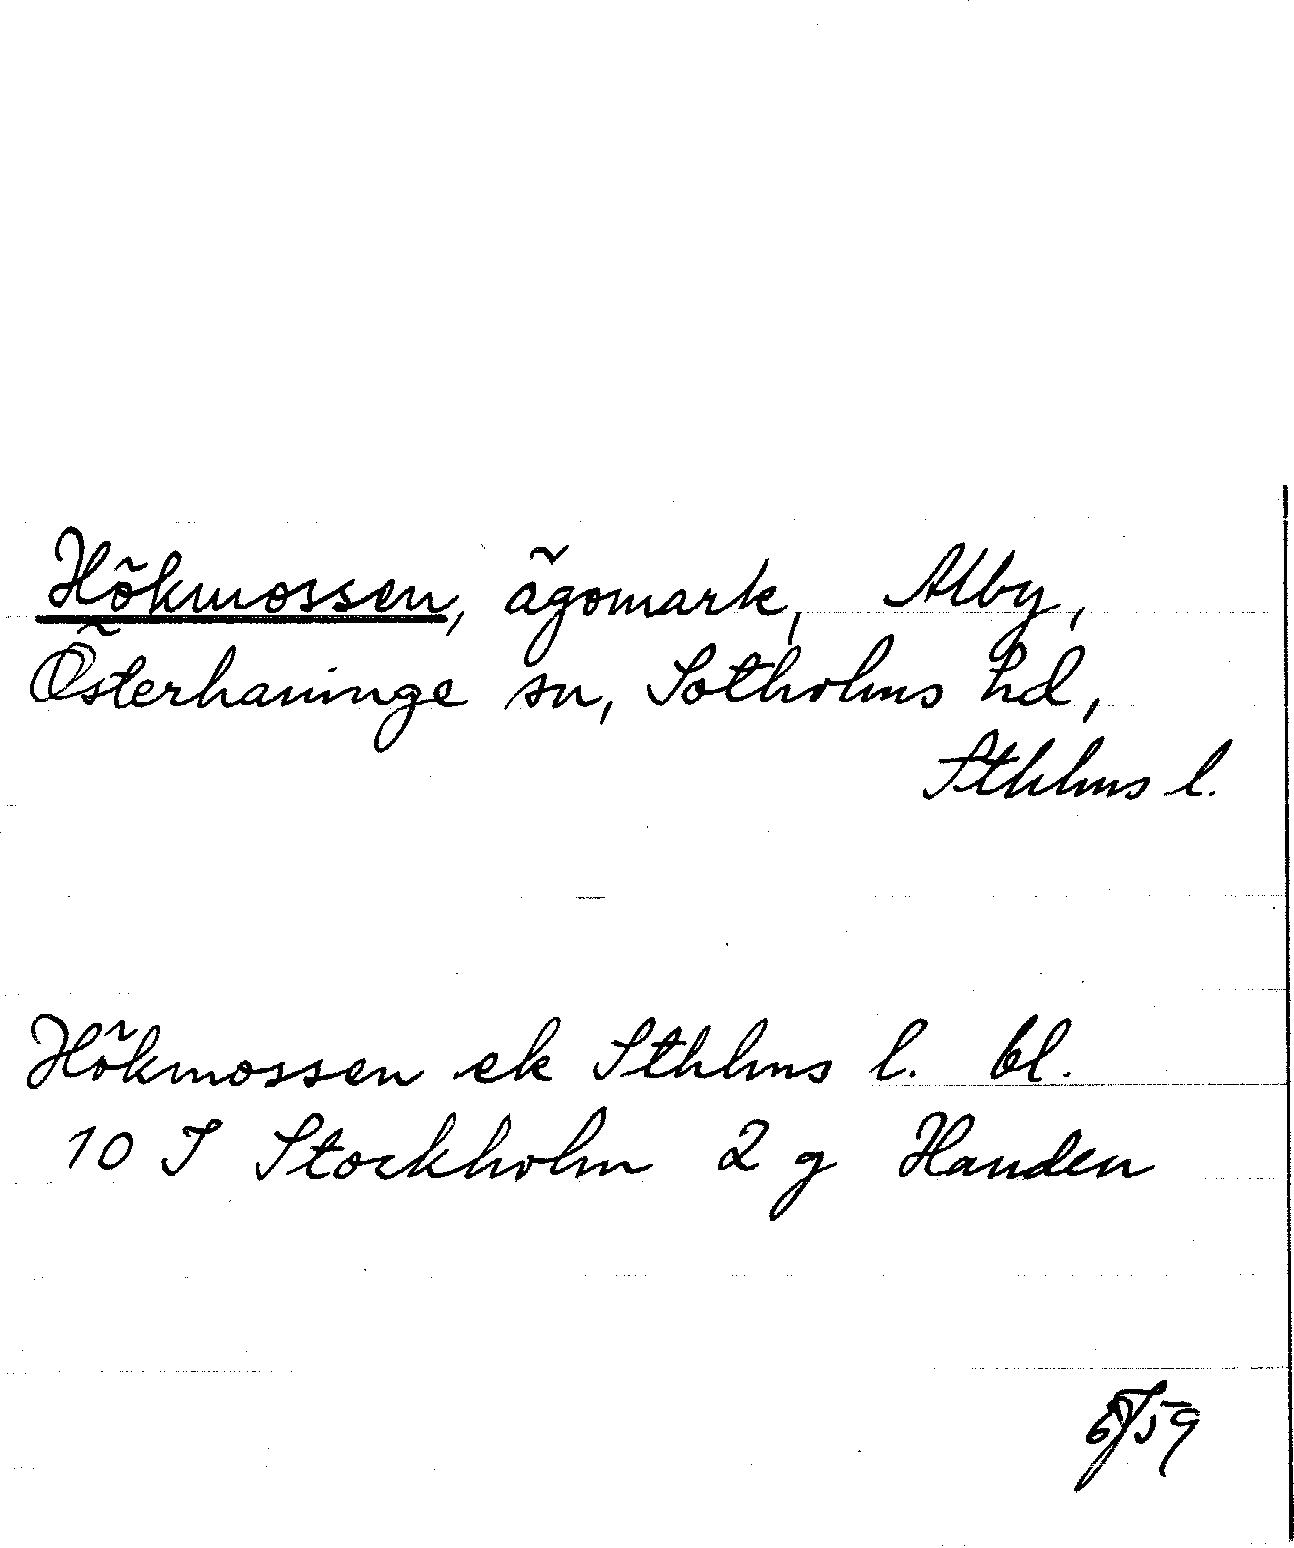 Hökmossen, ägomark, Alby,
Österhaninge sn, Sotholms hd,
Sthlms l.
Hökmossen ek Sthlms l. bl.
10 I Stockholm 2 g Handen